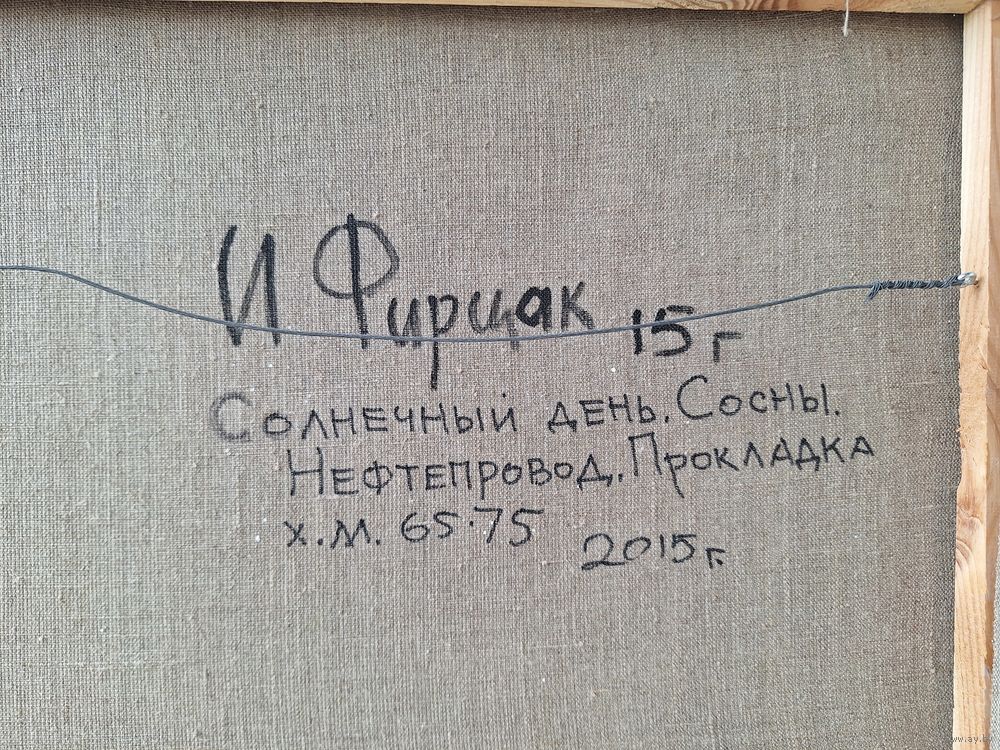 И Фирцак 15 г
Солнечный день. Сосны.
Нефтепровод. Прокладка
х.м. 65·75
2015 г.